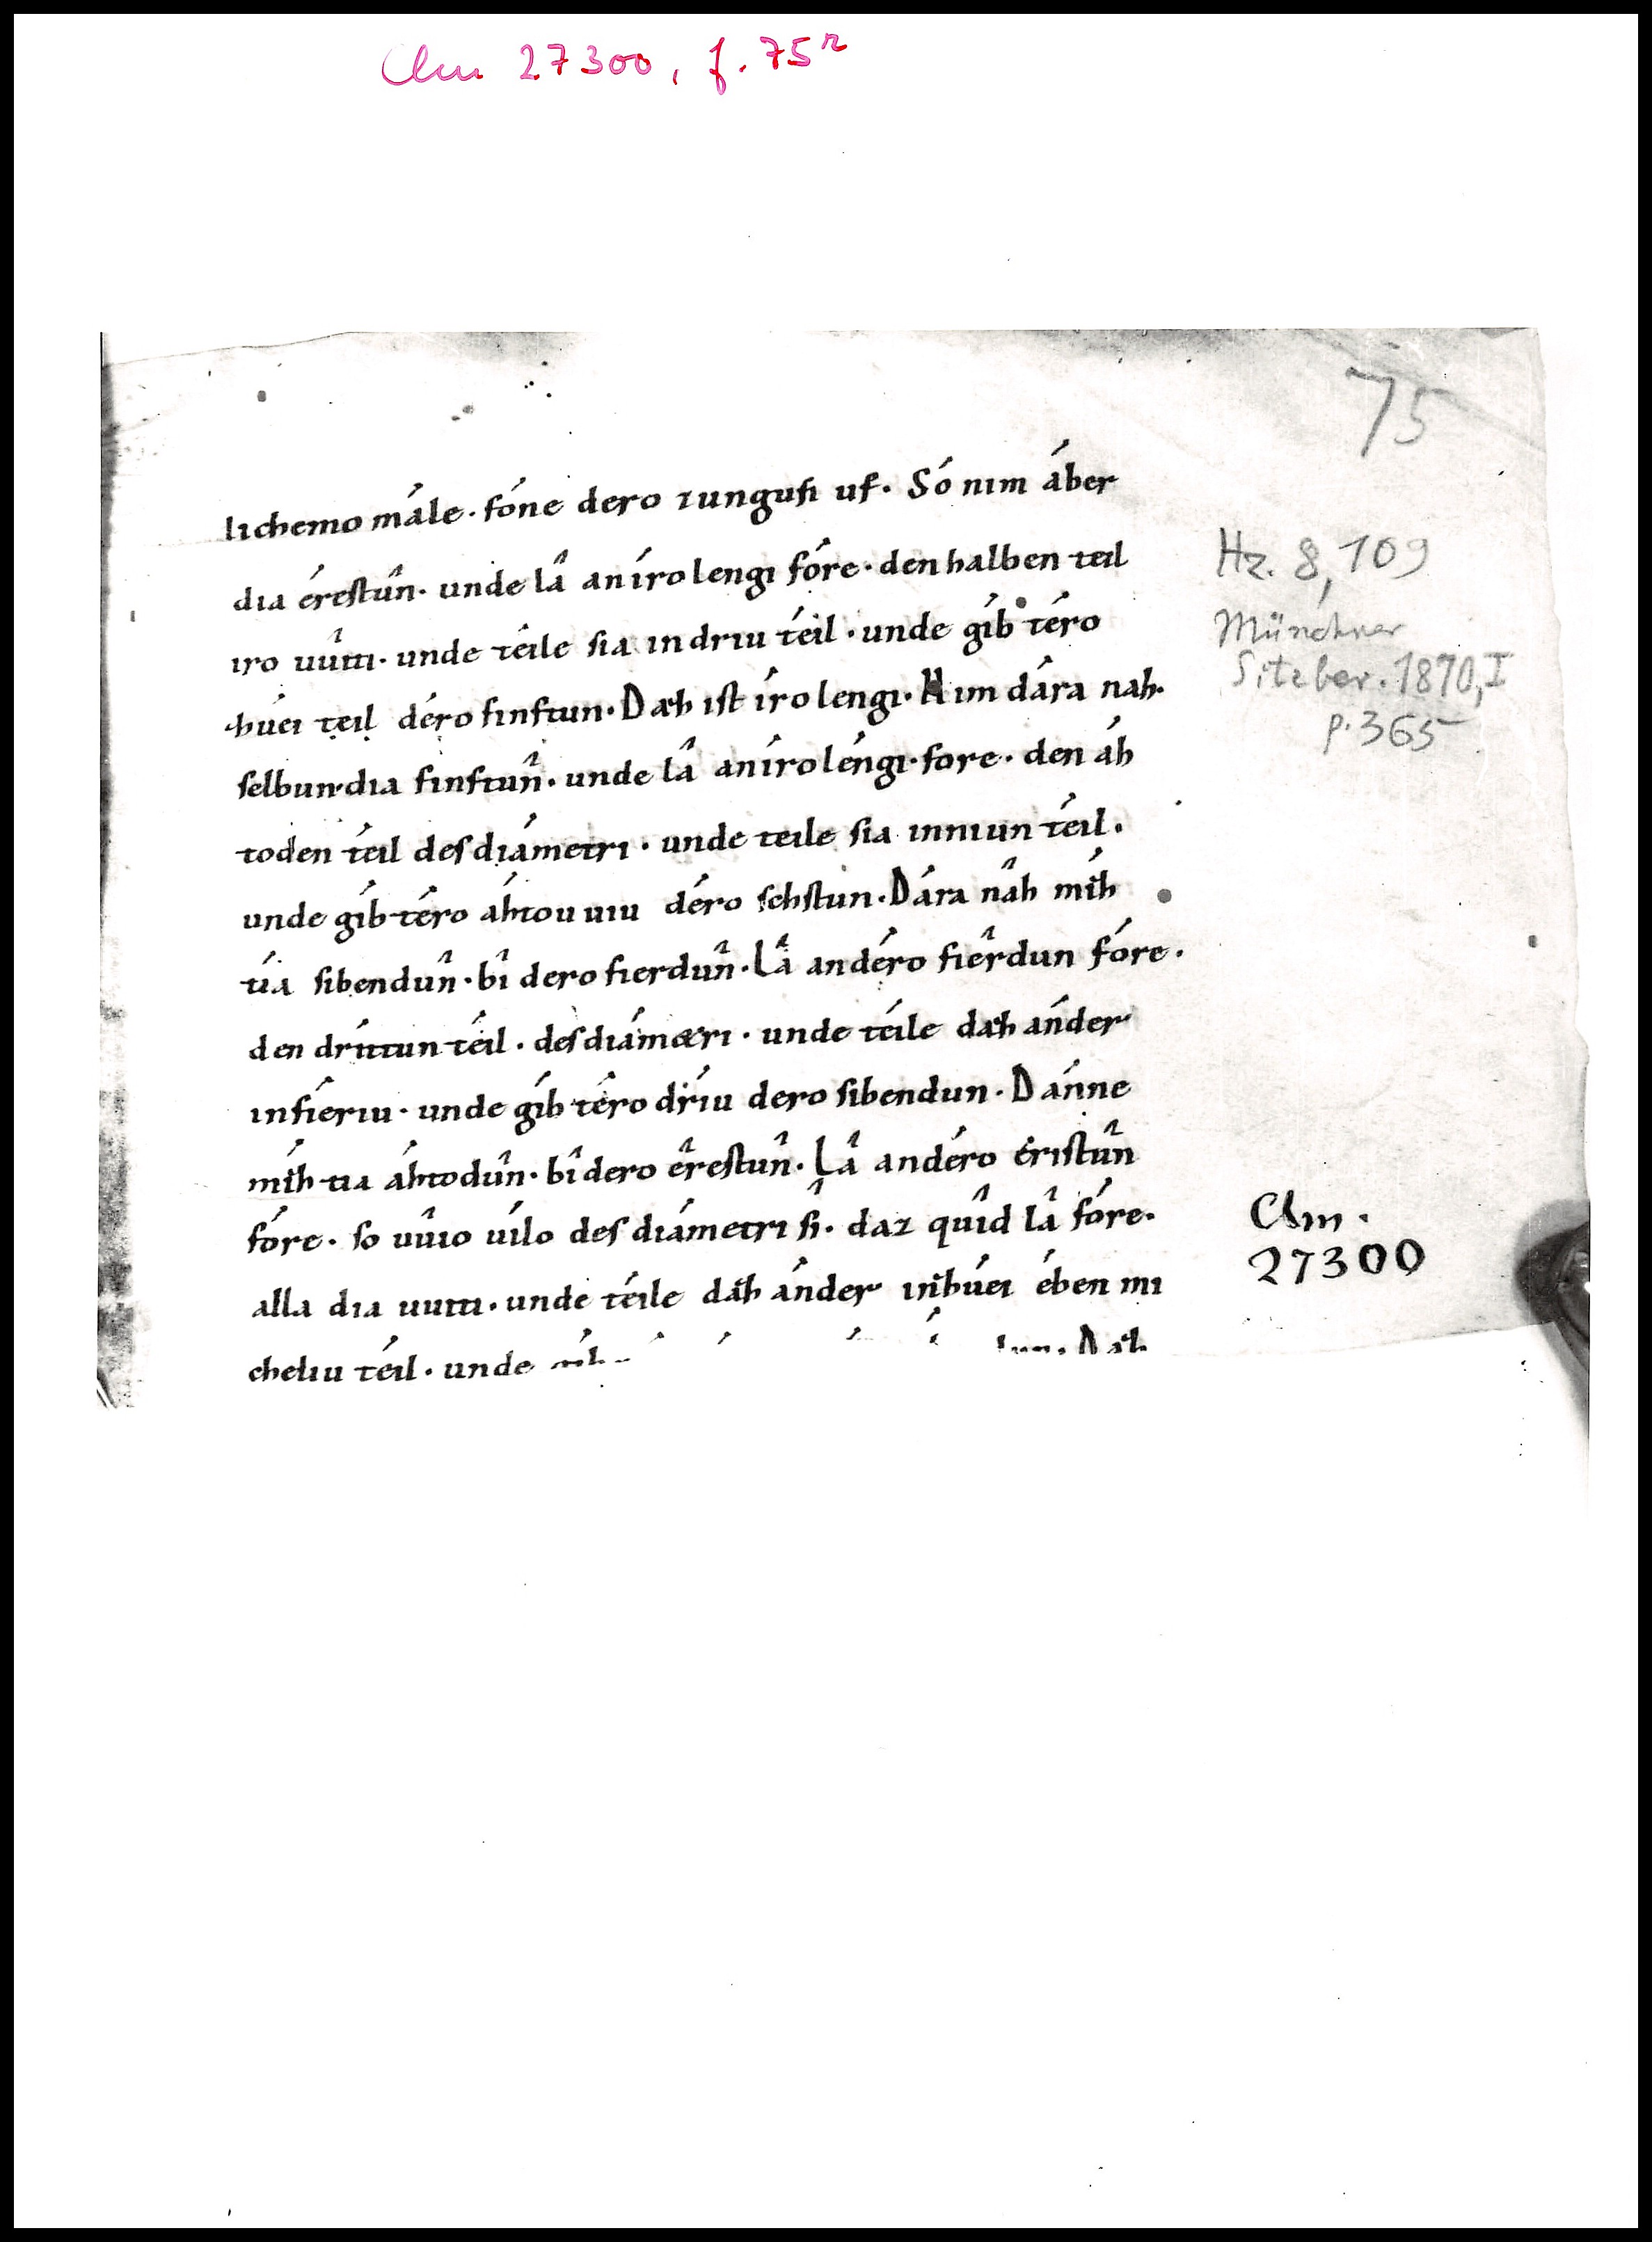 Clm 27300, f. 75r
75
lichemo mále · fóne dero zungusi uf · Só nim áber
dia érestûn · unde lâ an íro lengi fóre · den halben teil
iro uûiti · unde teîle sia in driu téil · unde gíb téro
zhúei teil déro finftun · Dazh ist íro lengi · Nim dára nah ·
selbun dia finftûn · unde lâ an íro léngi · fore · den áh
toden téil des diámetri · unde teile sia inniun téil ·
unde gíb téro áhtou uiu déro sehstun · Dára nâh mízh
tia sibendûn · bî dero fierdûn · Lâ an déro fiêrdun fóre ·
den dríttun téil · des diámetri · unde téile dazh ánder
infieriu · unde gíb têro dríu dero sibendun · Dánne
mízh tia áhtodûn · bî dero êrestûn · Lâ an déro éristûn
fóre · so uûio uílo des diámetri sî · daz quîd lâ fóre ·
alla dia uuiti · unde téile dázh ánder inzhúei ében mi
cheliu téil · unde
Hz. 8, 109
Münchner
Sitzber. 1870, I
p. 365
Clm.
27300